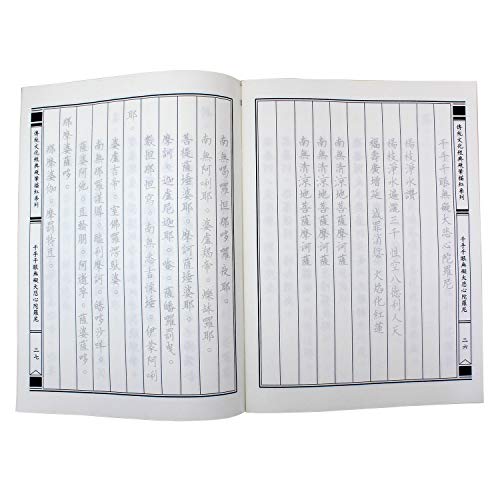 傳統文化經典硬筆描紅系列
千手千眼無礙大悲心陀羅尼
二六
千手千眼無礙大悲心陀羅尼
楊枝淨水讚
楊枝淨水遍灑三千 性空八德利人天
福壽廣增延 滅罪消愆 火焰化紅蓮
南無清涼地菩薩摩訶薩
南無清涼地菩薩摩訶薩
南無清涼地菩薩摩訶薩
南無喝囉怛那哆囉夜耶。
南無阿唎耶。婆盧羯帝。爍缽囉耶。
菩提薩埵婆耶。摩訶薩埵婆耶。
摩訶。迦盧尼迦耶。唵。薩皤囉罰曳。
數怛那怛寫。南無悉吉慄埵。伊蒙阿唎
耶。
婆盧吉帝。室佛囉楞馱婆。
南無那囉謹墀。醯利摩訶。皤哆沙咩。
薩婆阿他。豆輸朋。阿逝孕。薩婆薩哆。
那摩婆薩哆。
那摩婆伽。摩罰特豆。
傳統文化經典硬筆描紅系列
千手千眼無礙大悲心陀羅尼
二七